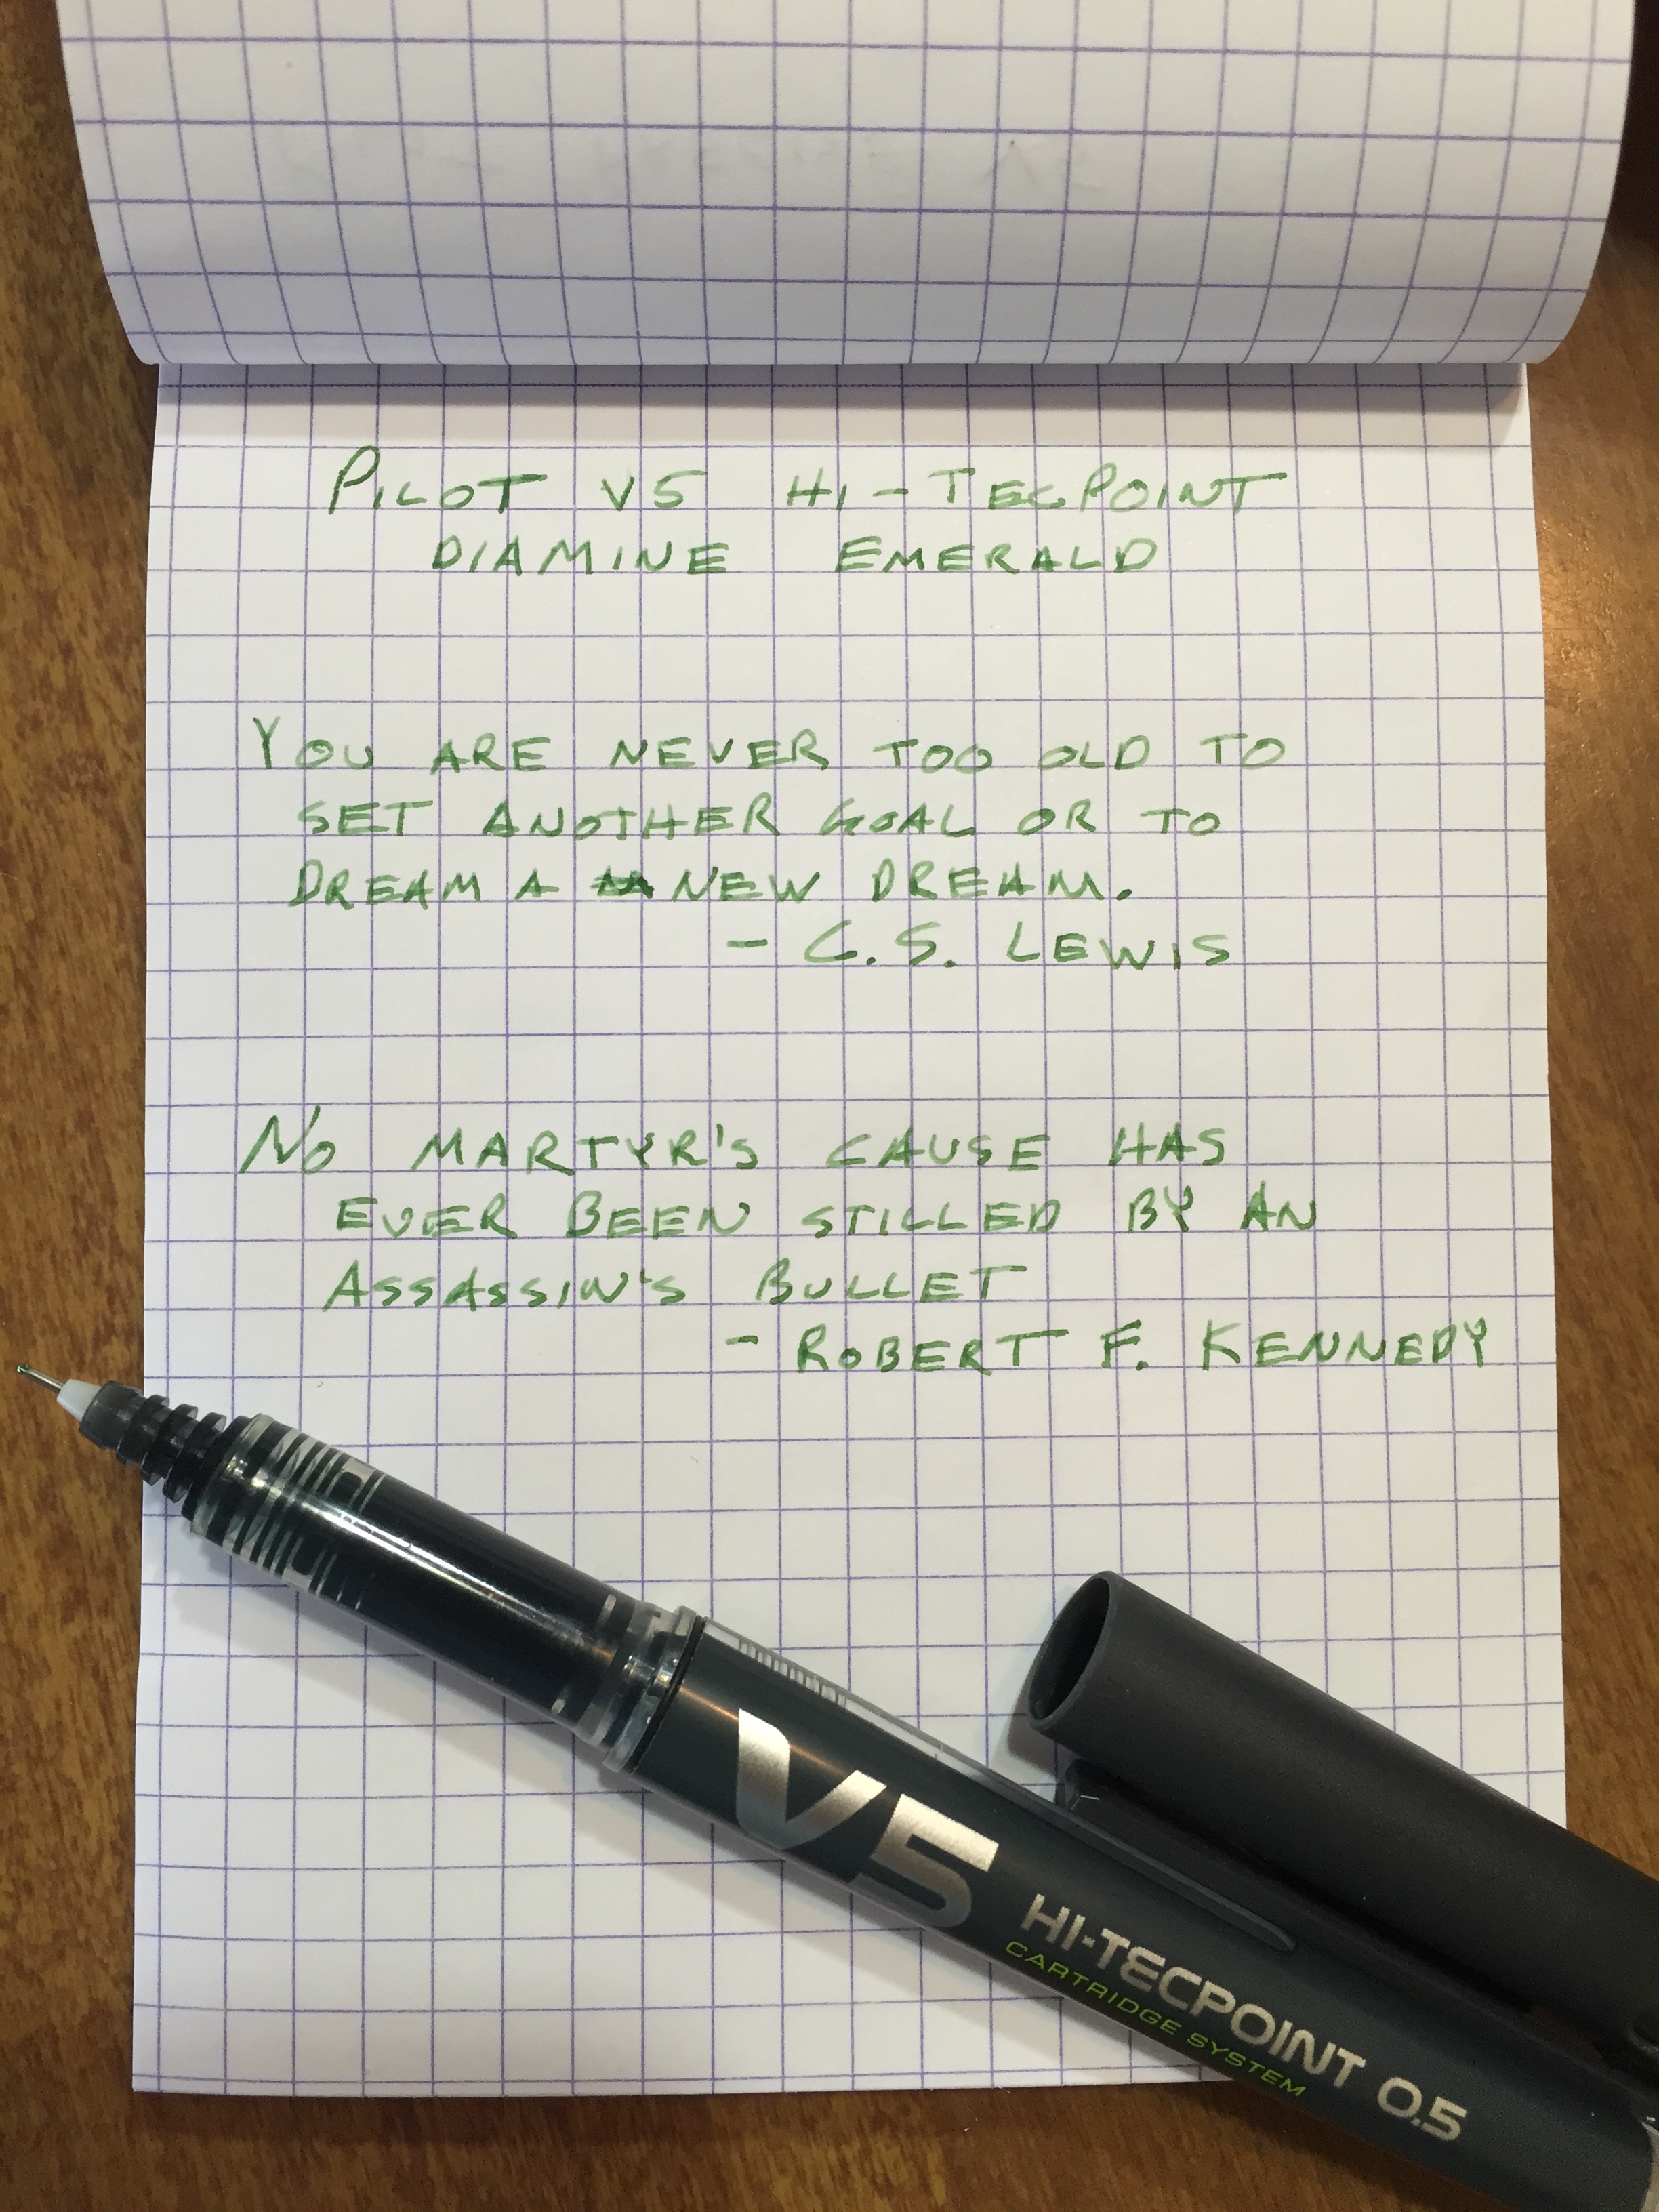 PILOT V5 HI-TECPOINT
DIAMINE EMERALD
YOU ARE NEVER TOO OLD TO
SET ANOTHER GOAL OR TO
DREAM A NEW DREAM.
- C.S. LEWIS
NO MARTYR'S CAUSE HAS
EVER BEEN STILLED BY AN
ASSASSIN'S BULLET
- ROBERT F. KENNEDY
V5
HI-TECPOINT 0.5
CARTRIDGE SYSTEM